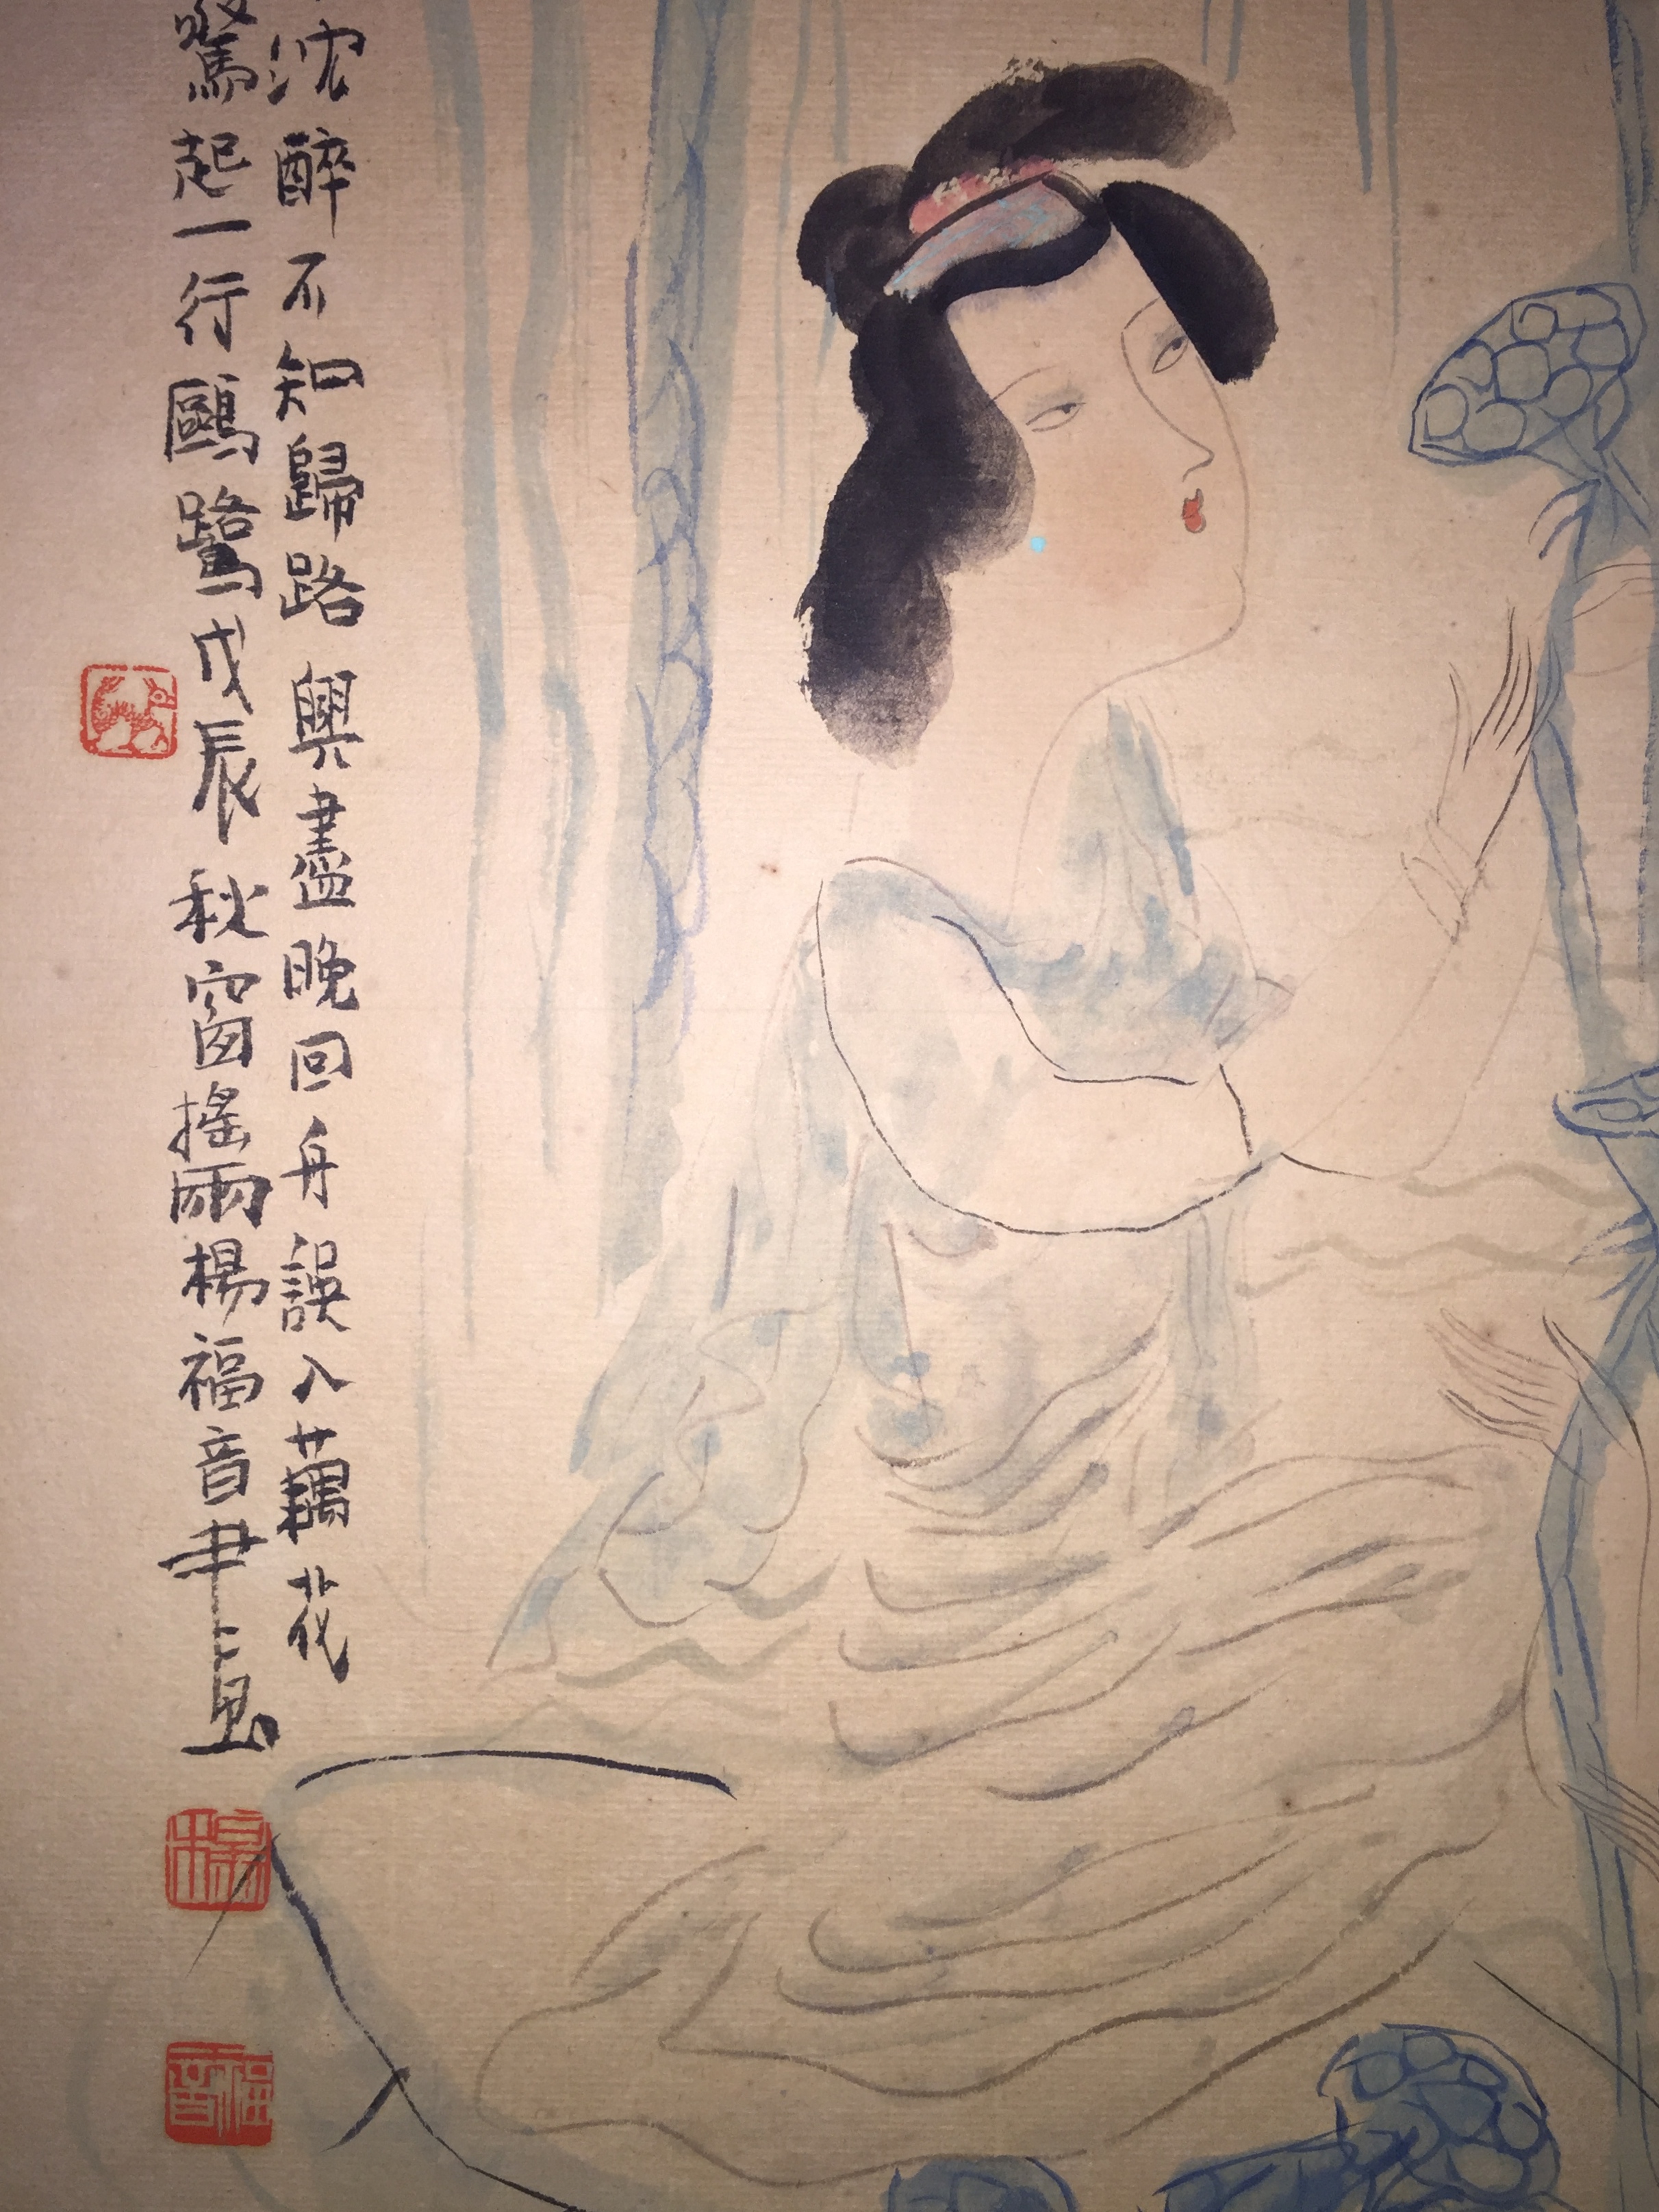 沈醉不知歸路興盡晚回舟誤入藕花
驚起一行鷗鷺戊辰秋窗搖雨楊福音畫
楊
福音